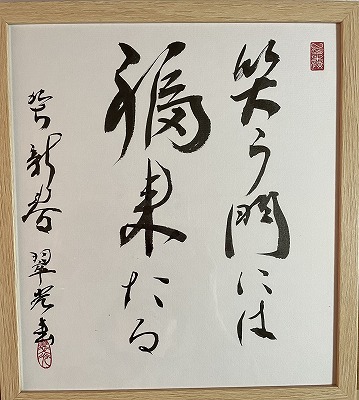 笑う門には
福来たる
賀新春 翠光書